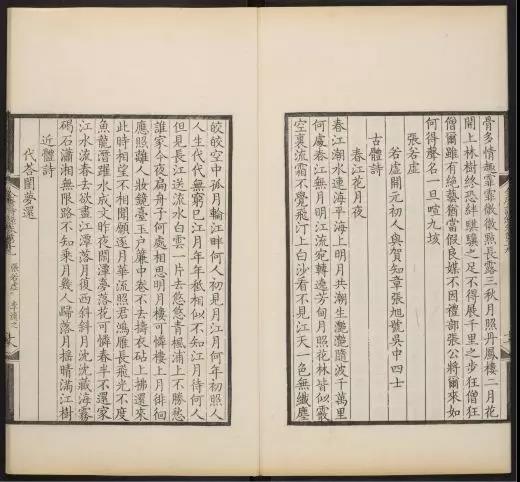 骨多情趣霏霏微微點長露三秋月照丹鳳樓二月花
開上林樹終恐絆騏驥之足不得展千里之步狂僧狂
僧爾雖有絕藝猶當假良媒不因禮部張公將爾來如
何得聲名一旦喧九垓
張若虛
若虛開元初人與賀知章張旭號吳中四士
古體詩
春江花月夜
春江潮水連海平海上明月共潮生灔灔隨波千萬里
何處春江無月明江流宛轉遶芳甸月照花林皆似霰
空裏流霜不覺飛汀上白沙看不見江天一色無纖塵
皎皎空中孤月輪江畔何人初見月江月何年初照人
人生代代無窮已江月年年秪相似不知江月待何人
但見長江送流水白雲一片去悠悠青楓浦上不勝愁
誰家今夜扁舟子何處相思明月樓可憐樓上月徘徊
應照離人妝鏡臺玉户簾中卷不去擣衣砧上拂還來
此時相望不相聞願逐月華流照君鴻雁長飛光不度
魚龍潛躍水成文昨夜閒潭夢落花可憐春半不還家
江水流春去欲盡江潭落月復西斜斜月沈沈藏海霧
碣石瀟湘無限路不知乘月幾人歸落月搖晴滿江樹
近體詩
代答閨夢還